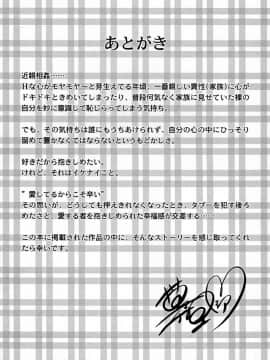 あとがき
近親相姦……
Hな心がモヤモヤーと芽生えてる年頃、一番親しい異性(家族)に心が
ドキドキときめいてしまったり、普段何気なく家族に見せていた裸の
自分を妙に意識して恥じらってしまう気持ち。
でも、その気持ちは誰にもうちあけられず、自分の心の中にひっそり
留めて置かなくてはならないというもどかしさ。
好きだから抱きしめたい。
けれど、それはイケナイこと。
"愛してるからこそ辛い"
その思いが、どうしても押えきれなくなったとき、タブーを犯す後ろ
めたさと、愛する者を抱きしめられた幸福感が交差する…
この本に掲載された作品の中に、そんなストーリーを感じ取ってくれ
たら幸いです。